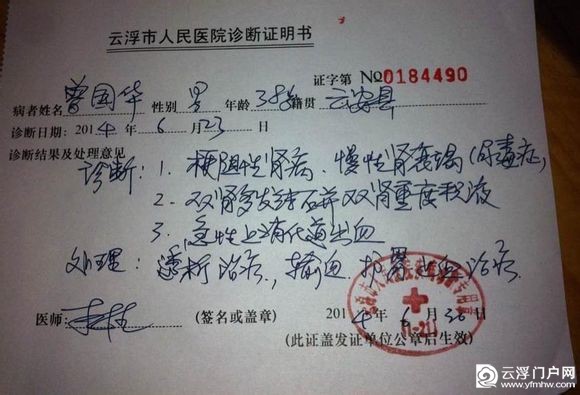 云浮市人民医院诊断证明书
证字第 №0184490
病者姓名 曾国华 性别 男 年龄 38岁 籍贯 云安县
诊断日期: 2014年 6 月23 日
诊断结果及处理意见
诊断: 1. 梗阻性肾病、慢性肾衰竭(尿毒症)
2. 双肾多发结石并双肾重度积液
3. 急性上消化道出血
处理: 透析治疗, 输血, 护胃止血治疗.
医师: (签名或盖章) 2014年 6 月 30 日
(此证盖发证单位公章后生效)
云浮门户网
www.yfmhw.com